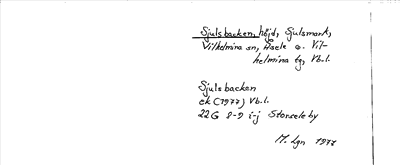 Sjulsbacken, höjd, Sjulsmark,
Vilhelmina sn, Åsele o. Vil-
helmina tg, Vb.l.
Sjulsbacken
ek (1977) Vb.l.
22G 8-9 i-j Storseleby
M. Lgn 1977